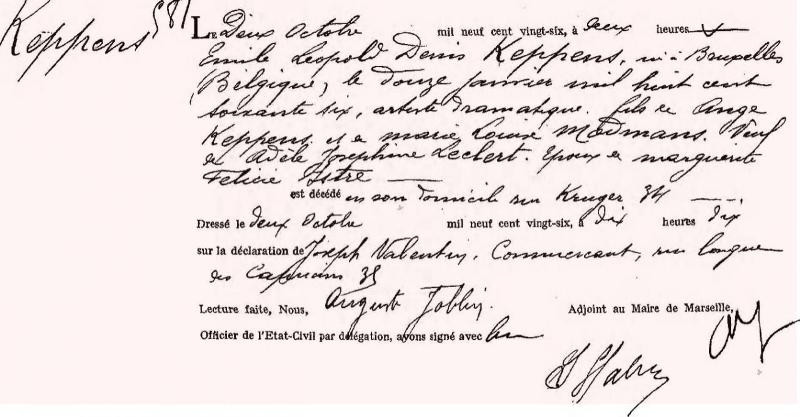 Keppens 581
LE Deux Octobre mil neuf cent vingt-six, à deux heures
Emile Leopold Denis Keppens, né à Bruxelles
(Belgique) le douze janvier mil huit cent
soixante six, artiste dramatique. fils de Ange
Keppens et de marie Louise Madmans. Veuf
de Adèle Joséphine Leclert. Epoux de marguerite
Felicie Istre
est décédé en son domicile rue Kruger 34
Dressé le deux Octobre mil neuf cent vingt-six, à dix heures dix
sur la déclaration de Joseph Valentin, Commercant, rue longue
des Capucins 35
Lecture faite, Nous, Auguste Adjoint au Maire de Marseille,
Officier de l'Etat-Civil par délégation, avons signé avec lui